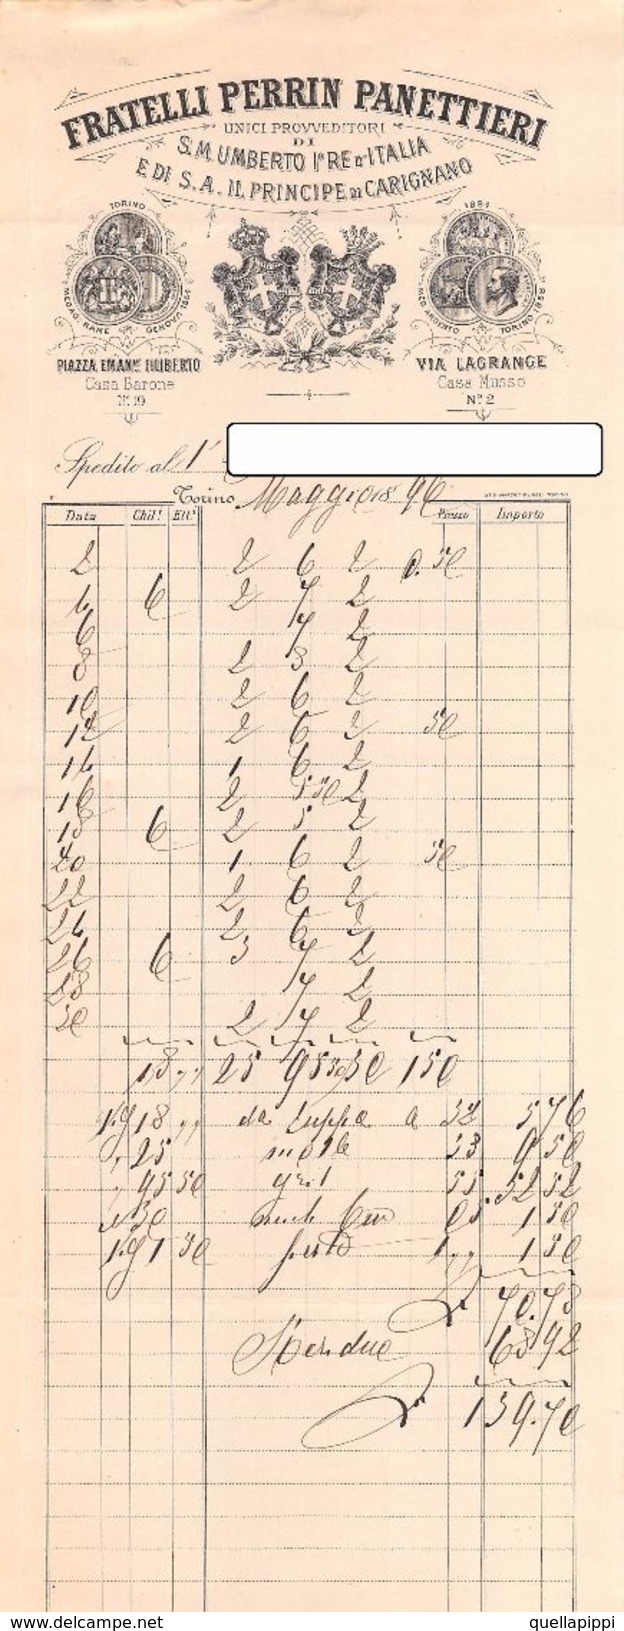 FRATELLI PERRIN PANETTIERI
UNICI PROVVEDITORI
DI
S.M. UMBERTO I° RE D'ITALIA
E DI S.A. IL PRINCIPE DI CARIGNANO
TORINO
MEDAG. RAME GENOVA
1884
MED. ARGENTO TORINO 1858
PIAZZA EMAN.le FILIBERTO
Casa Barone
N.º 19
VIA LAGRANGE
Casa Musso
N.º 2
Spedito al
Torino Maggio 18 96
Data Chil.i Ett.i Prezzo Importo
2 2 6 2 0.50
4 6 2 7 2
6 7 2
8 2 8 2
10 2 6 2
12 2 6 2 50
14 1 6 2
16 2 5 50 2
18 6 2 5 2
20 1 6 2 50
22 2 6 2
24 2 6 2
26 6 3 7 2
28 7 2
30 2 7 2
18 25 95 50 30 150
Kg 18 da zuppa a 32 5 76
25 38 9 50
95 50 55 52 52
30 05 1 50
Kg 1 50 1 1 50
70.78
68 92
139.70
quellapippi